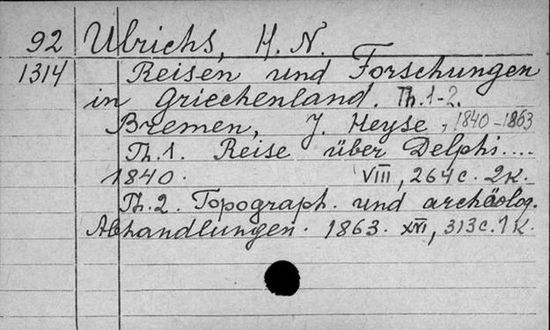 92 Ulrichs, H. N.
1314 Reisen und Forschungen
in Griechenland. Th. 1-2.
Bremen, J. Heyse, 1840-1863
Th. 1. Reise über Delphi....
1840. VIII, 264 c. 2 k.
Th. 2. Topograph. und archäolog.
Abhandlungen. 1863. XVI, 313 c. 1 k.